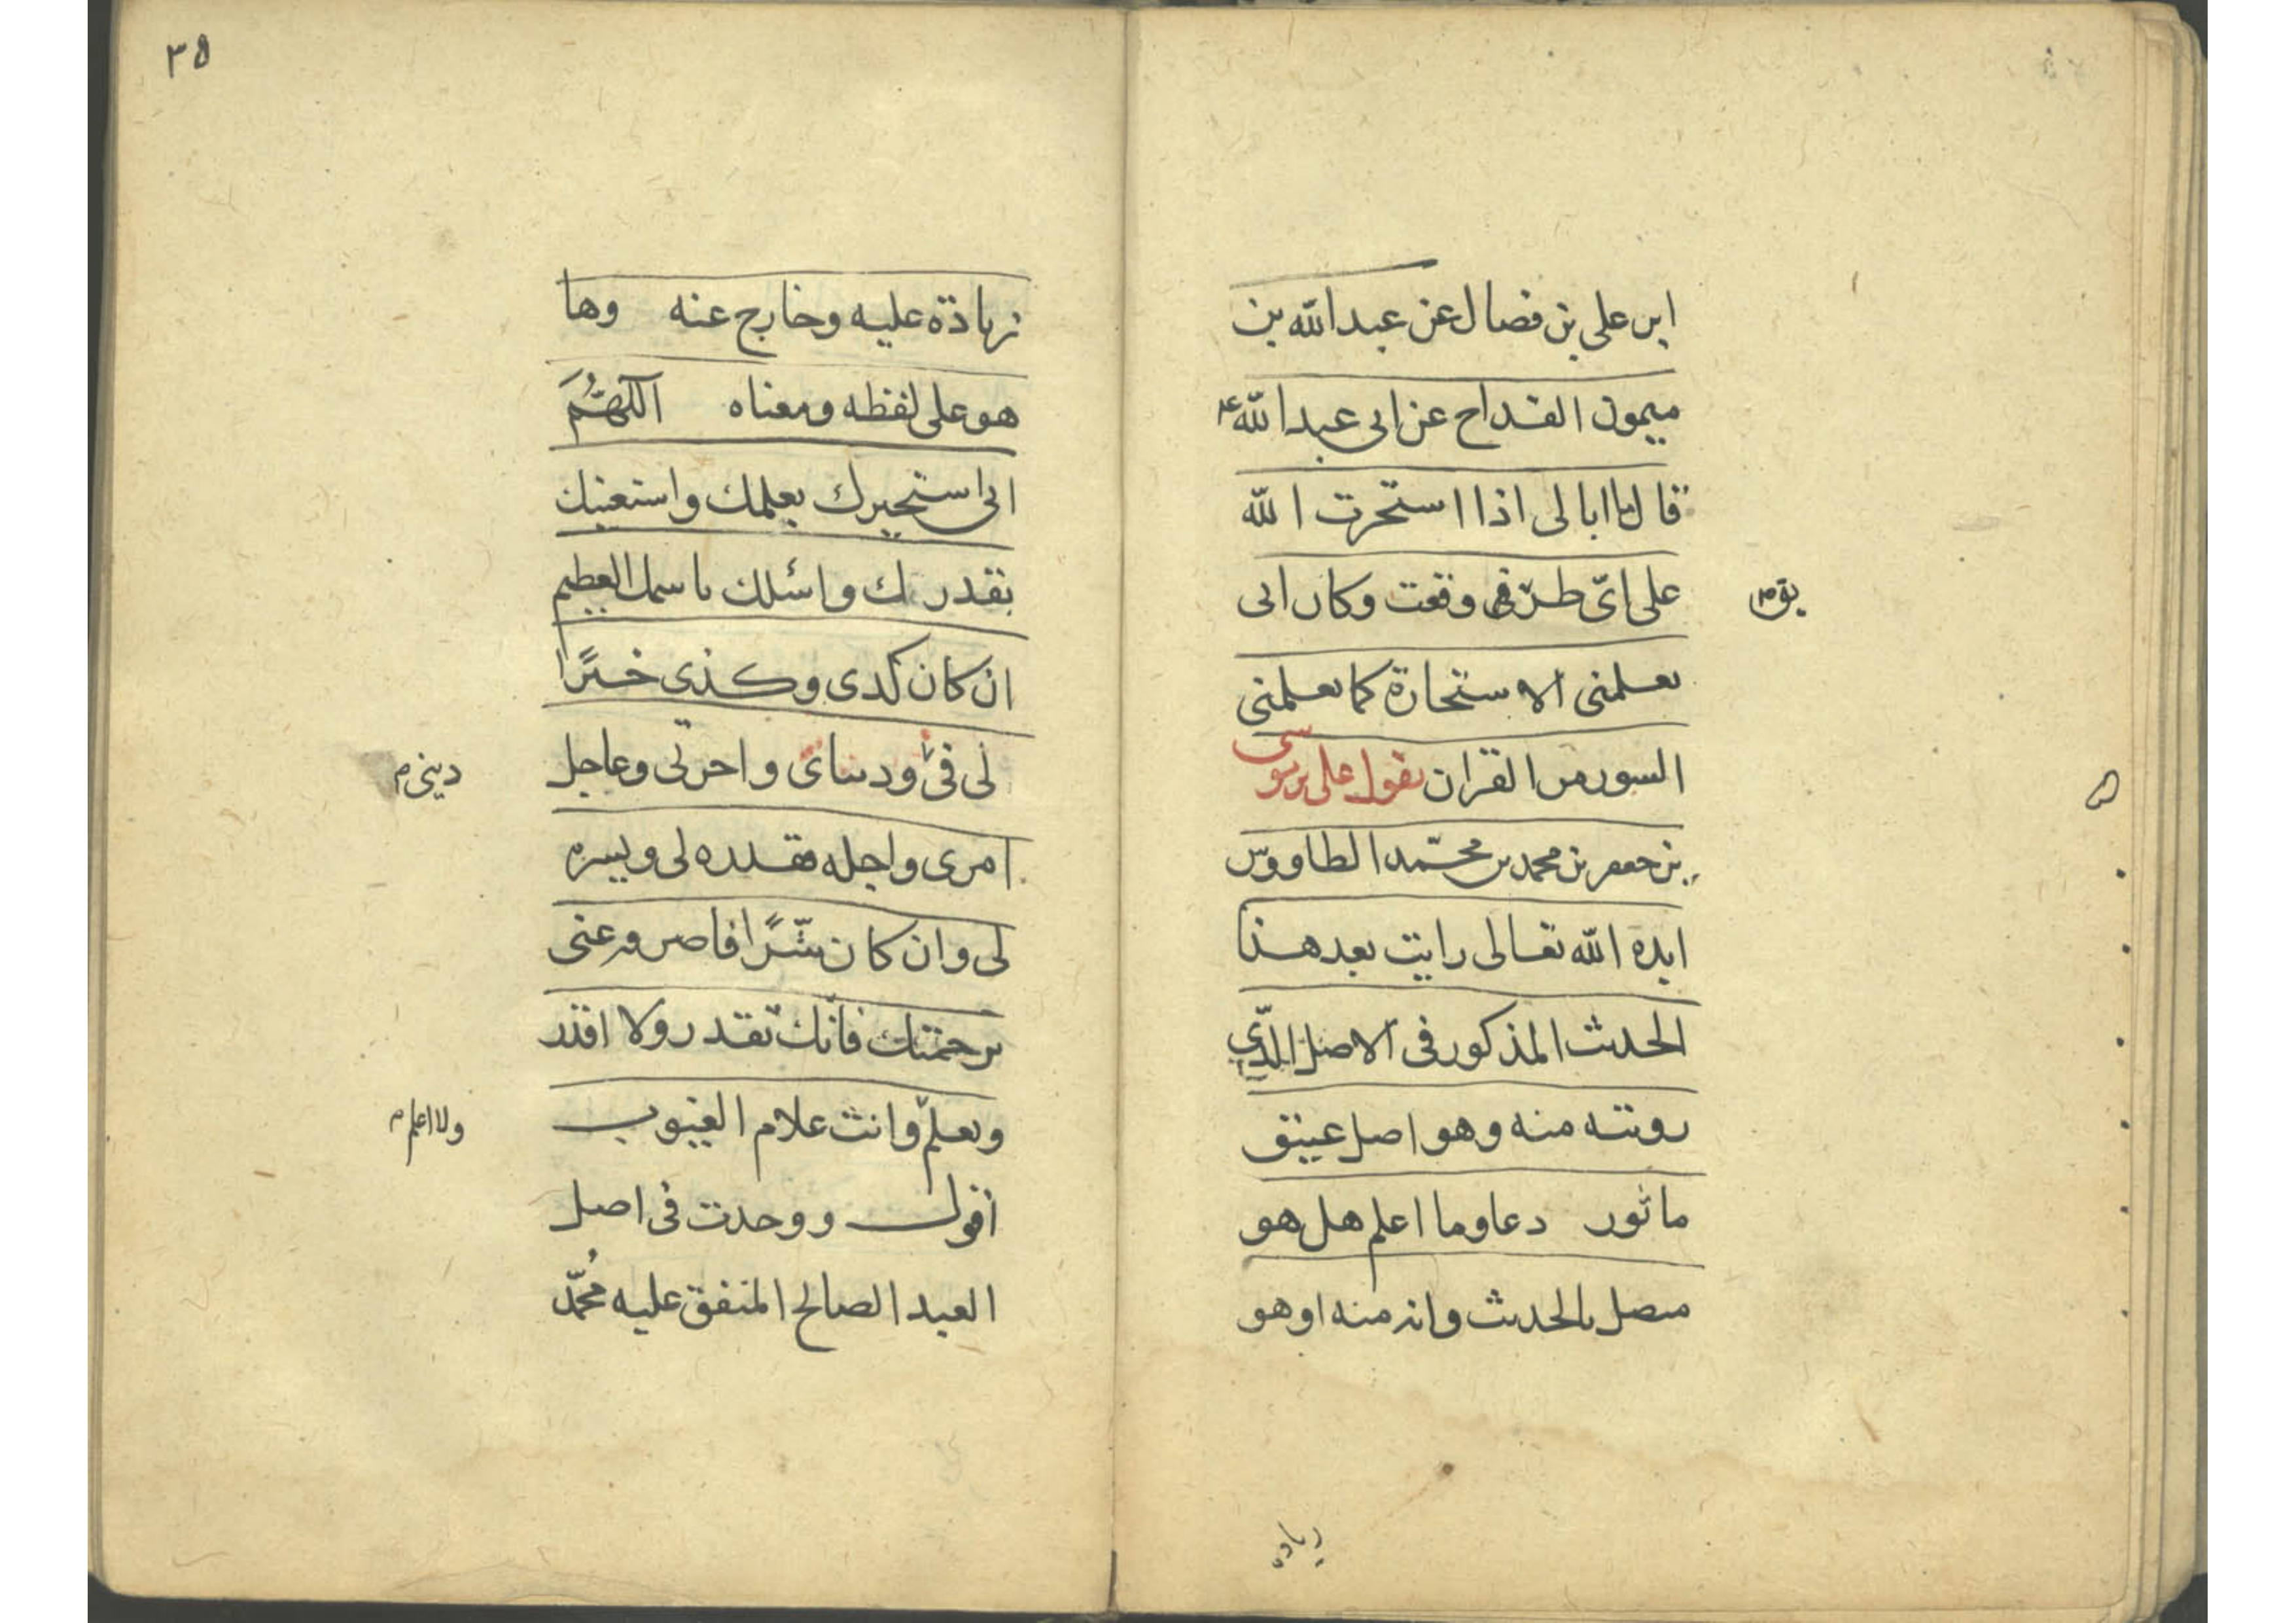 ابن على بن فضال عن عبد الله بن
ميمون القداح عن ابى عبد الله ع
قال ما ابالى اذا استخرت الله
على اىّ طرفى وقعت وكان ابى
يعلمنى الاستخارة كما يعلمنى
السور من القران يقول على بن موسى
بن جعفر بن محمد بن محمّد الطاووس
ايده الله تعالى رايت بعد هذا
الحديث المذكور فى الاصل الّذي
رويته منه وهو اصل عتيق
ماثور دعا وما اعلم هل هو
متصل بالحديث وانه منه او هو
زياده
٣٥
زيادة عليه وخارج عنه وها
هو على لفظه ومعناه اللّهُمَّ
انى استخيرك بعلمك واستعينك
بقدرتك واسئلك باسمك العظيم
ان كان كذى وكذى خيرًا
لى فى ودنياى واخرتى وعاجل
دينى م
امرى واجله فقدره لى ويسره
لى وان كان شرًّا فاصرفه عنى
برحمتك فانّك تقدر ولا اقدر
وتعلم وانت علام الغيوب
ولا اعلم م
اقول ووجدت فى اصل
العبد الصالح المتفق عليه مُحمّد